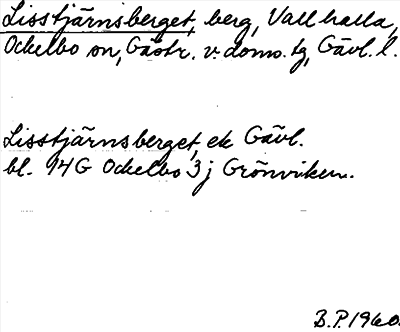 Lisstjärnsberget, berg, Vallhalla,
Ockelbo sn, Gästr. v. doms. tg, Gävl. l.
Lisstjärnsberget, ek Gävl.
bl. 94G Ockelbo 3j Grönviken.
B.P. 1960.